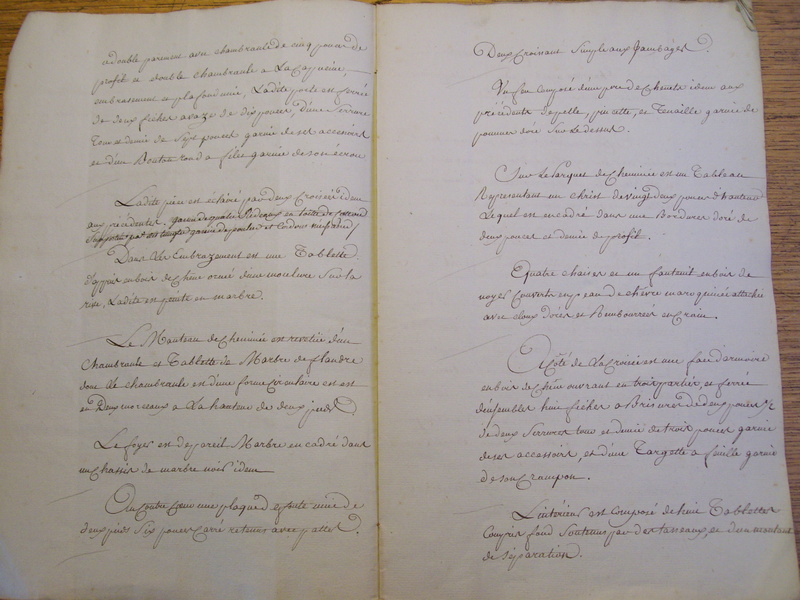 a double parement avec chambranle de cinq pouces de
profil et double chambranle a La Capucine,
embrasement et plafond unie, Ladite porte est ferrée
de deux fiches a vaze de dix pouces, d'une Serrure
Tour et demie de Sept pouces garnie de ses accessoirs
et d'un Bouton rond a filet garnie de son écrou
Ladite pièce est éclairé par deux Croisées idem
aux précédentes, garnie de quatre Rideaux en toille de
Dans Les Embrazement est une Tablette
d'appuis en bois de Chêne ornée d'une moulure Sur la
rive, Ladite en peinte en marbre.
Le Manteau de Cheminée est revetüe d'un
Chambranle et Tablette de Marbre de flandre
donc Le chambranle est d'une forme circulaire et est
en Deux morceaux a La hauteur de deux pieds
Le foyer est de pareil Marbre encadré dans
un Chassis de marbre noir idem
Au Contre Coeur une plaque de fonte unie de
deux pieds Six pouces Carré retenue avec pattes.
Deux Croissant Simple aux Jambages.
Un feu Composé d'une paire de Chenets idem aux
précédents de pelle, pincette, et Tenaille garnie de
pommes dorée Sur Le dessus.
Sur Le Parquet de Cheminée est un Tableau
Representant un Christ de vingt deux pouces d'hauteur
Lequel est encadré dans une Bordure doré de
deux pouces et demie de profil.
Quatre chaises et un fauteuil en bois de
noyer Couverts en peau de chèvre maroquinée attachée
avec cloux dorés et Rembourrées en Crain.
A Côté de La Croisée est une fond d'armoire
en bois de Chêne ouvrant en trois parties et ferrée
d'ensembles huit fiches a Brisures de deux pouces ½
de deux Serrures tour et demie de trois pouces garnie
de ses accessoirs, et d'une Targette a feuille garnie
de son Crampon.
L'interieur est Composé de huit Tablettes
Compris fond Soutenus par des tasseaux, et d'un montant
de Séparation.